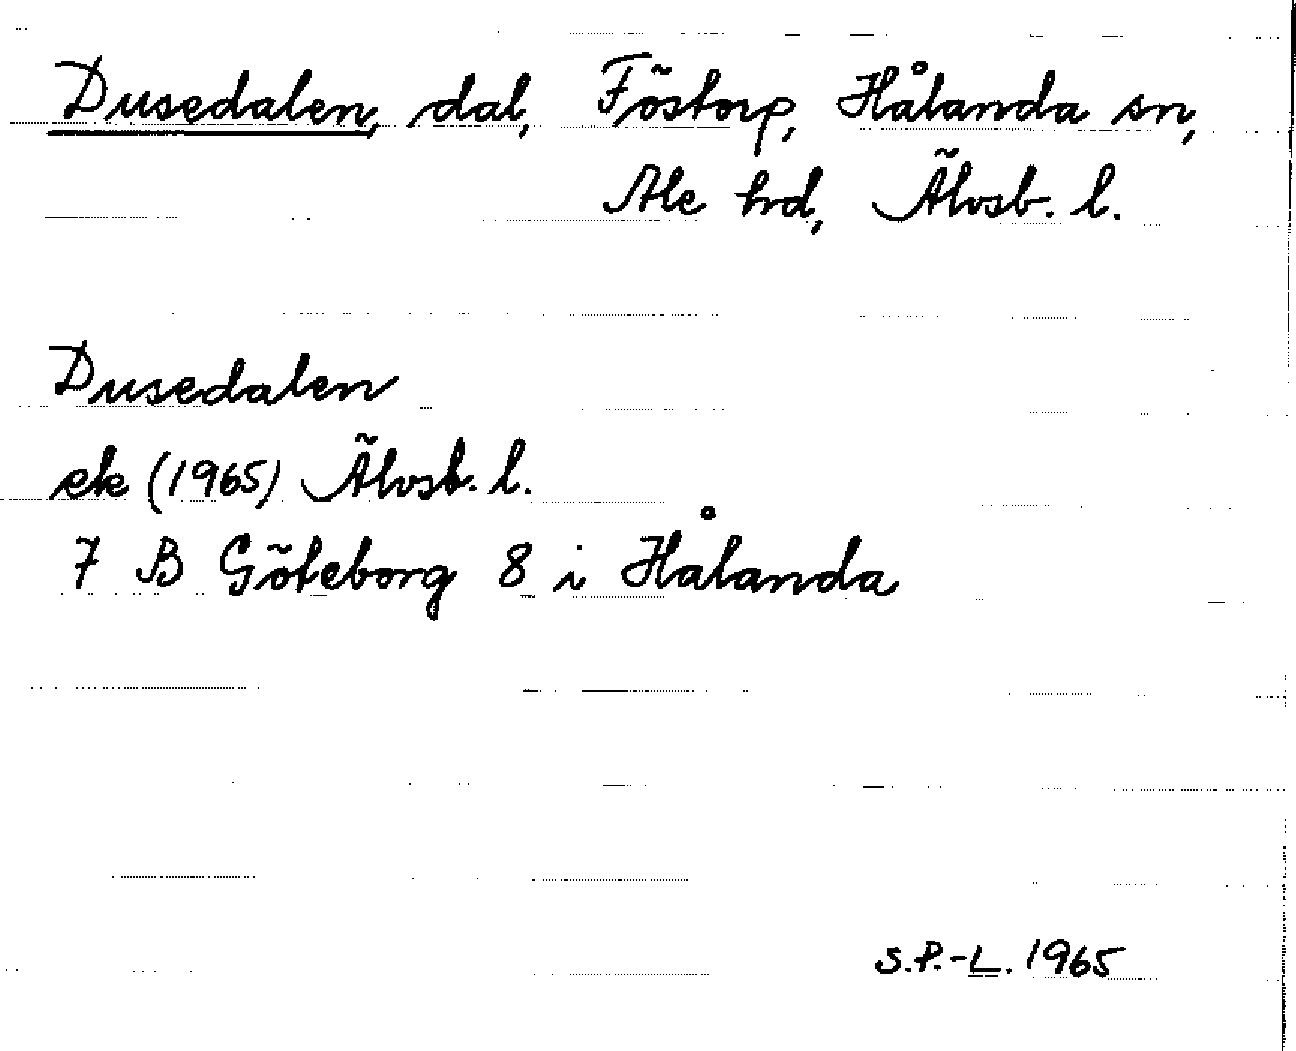 Dusedalen, dal, Föstorp, Hålanda sn,
Ale hrd, Älvsb. l.
Dusedalen
ek (1965) Älvsb. l.
7 B Göteborg 8 i Hålanda
S.P.-L. 1965